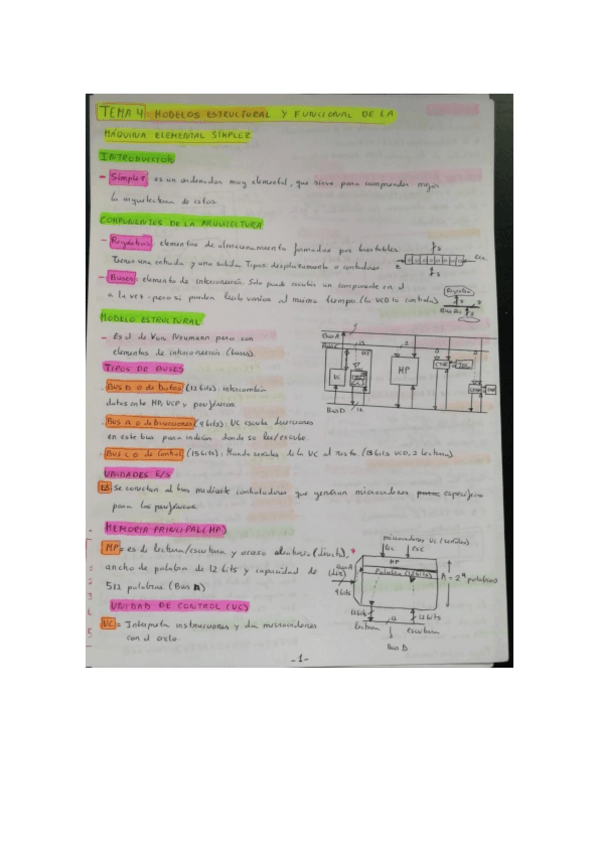 TEMA 4: MODELOS ESTRUCTURAL Y FUNCIONAL DE LA
MÁQUINA ELEMENTAL SÍMPLEZ
INTRODUCCIÓN
- Símplez: es un ordenador muy elemental, que sirve para comprender mejor
la arquitectura de estos.
COMPONENTES DE LA ARQUITECTURA
- Registros: elementos de almacenamiento formados por biestables.
Tienen una entrada y una salida. Tipos: desplazamiento o contadores
- Buses: elemento de interconexión. Solo puede escribir un componente en él
a la vez, pero sí pueden leerlo varios al mismo tiempo (la UCD lo controla)
Registro
Bus A
MODELO ESTRUCTURAL
- Es el de Von Neumann pero con
elementos de interconexión (buses).
TIPOS DE BUSES
- Bus D o de Datos (12 bits): intercambian
datos entre MP, UCP y periféricos.
- Bus A o de Direcciones (9 bits): UC escribe direcciones
en este bus para indicar donde se lee/escribe.
- Bus C o de Control (15 bits): Manda señales de la UC al resto (13 bits UCD, 2 lectura)
Bus A
UC
MP
Bus D 12
UNIDADES E/S
ES Se conectan al bus mediante controladores que generan microórdenes específicas
para los periféricos.
MEMORIA PRINCIPAL (MP)
MP = es de lectura/escritura y acceso aleatorio (directo),
ancho de palabra de 12 bits y capacidad de
512 palabras (Bus A)
microórdenes UC (señales)
lec esc
MP
Palabra (12 bits)
Bus A
(dir)
9 bits
A = 2⁹ palabras
12 bits
12 bits
12
lectura
escritura
Bus D
UNIDAD DE CONTROL (UC)
UC = Interpreta instrucciones y da microórdenes
con el ciclo.
-1-